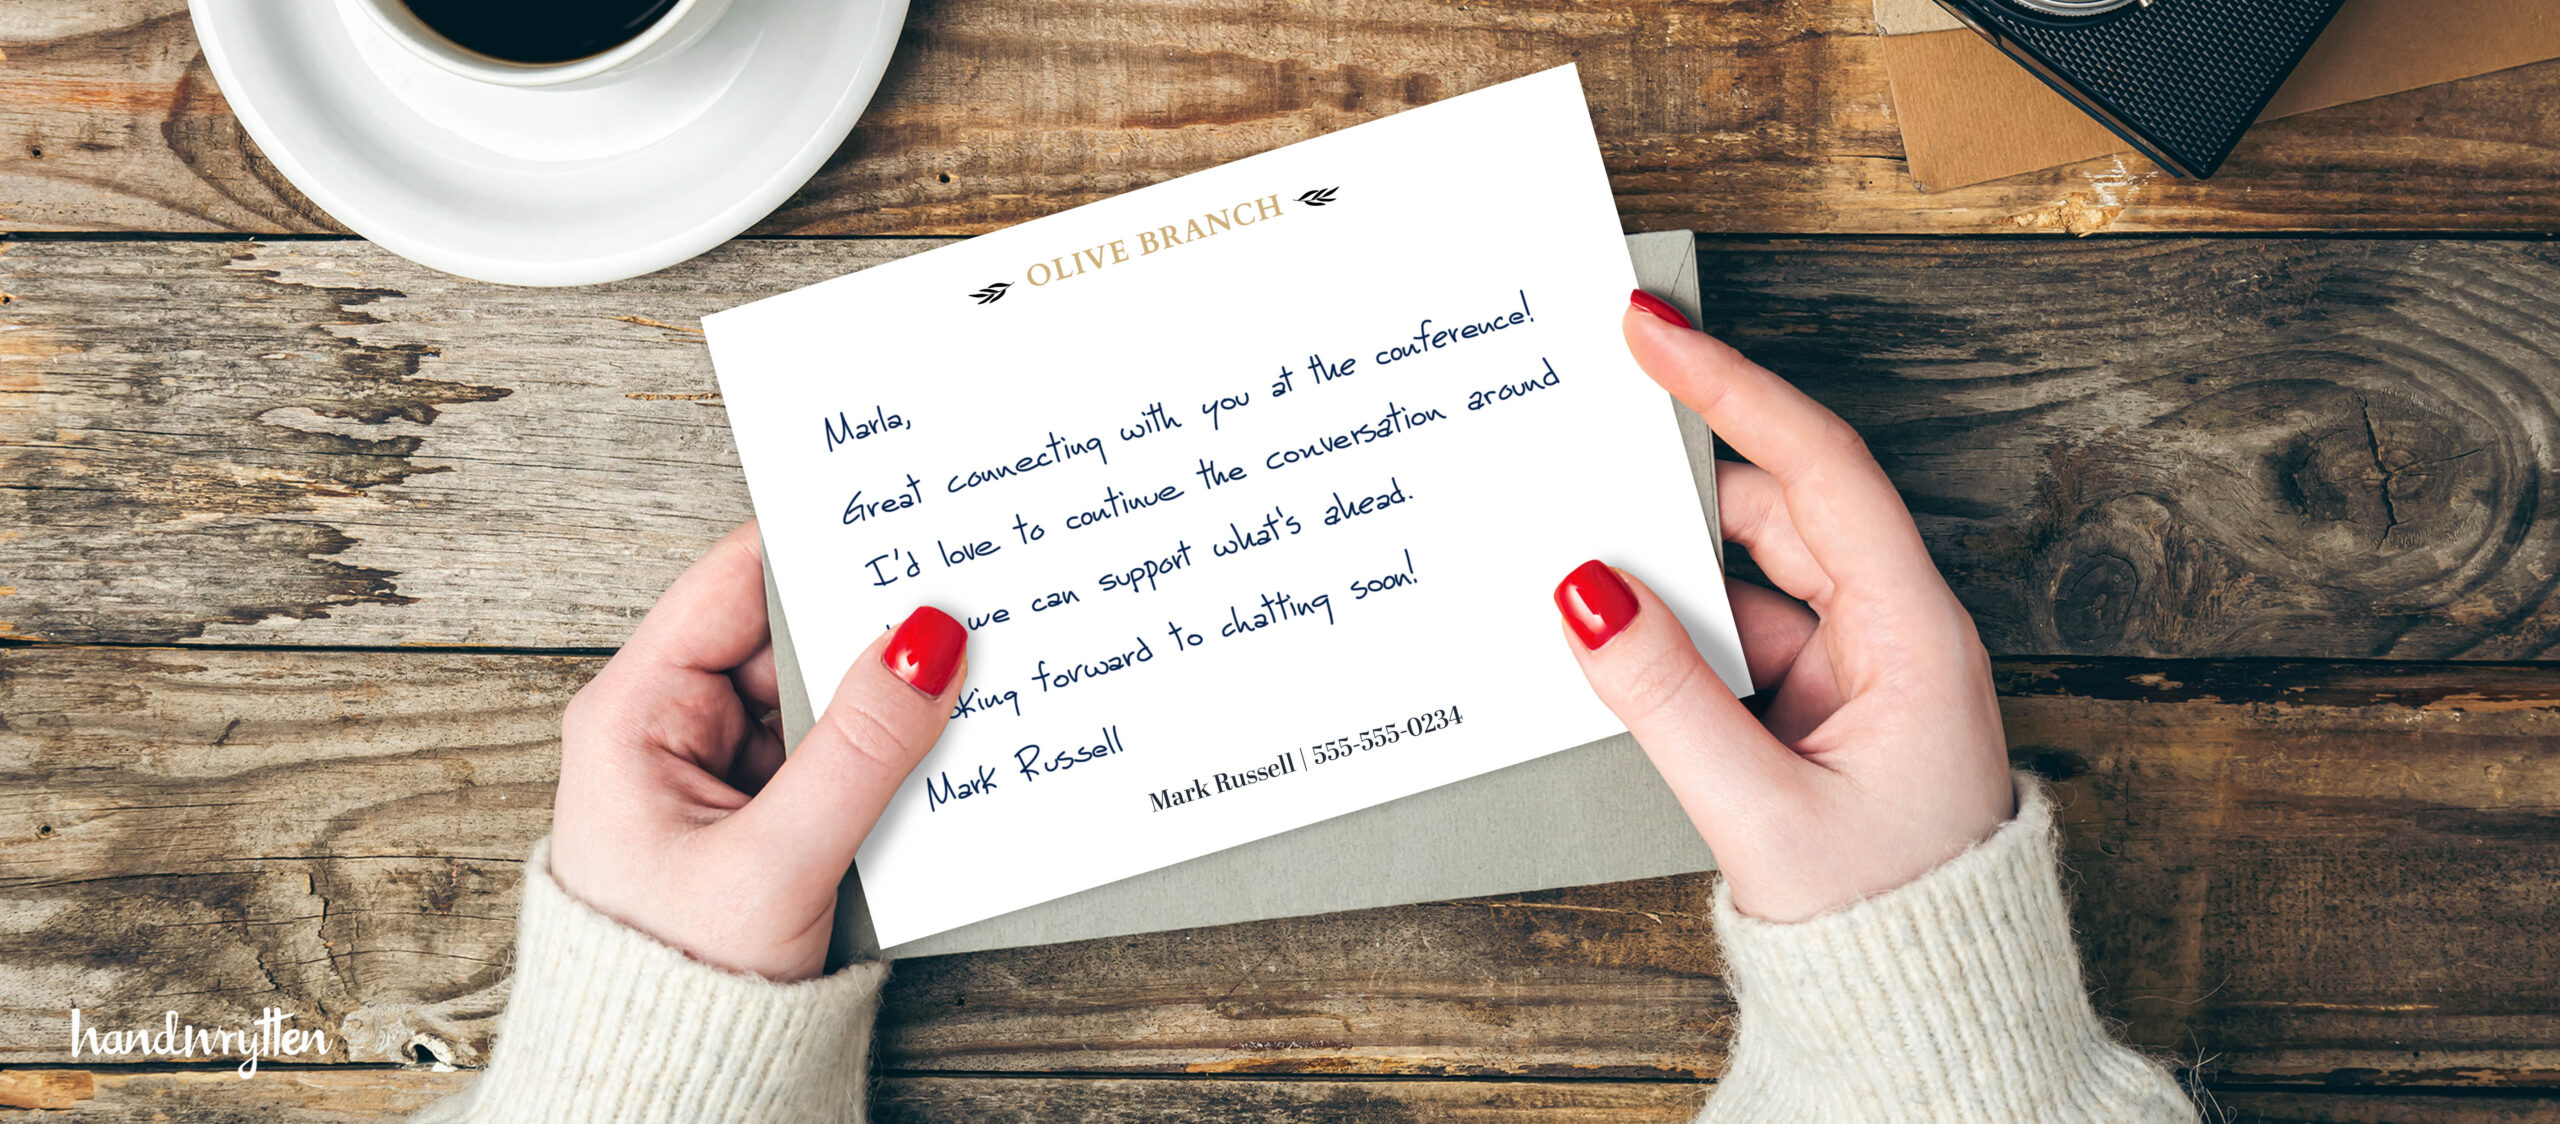 OLIVE BRANCH
Marla,
Great connecting with you at the conference!
I'd love to continue the conversation around
we can support what's ahead.
forward to chatting soon!
Mark Russell
Mark Russell | 555-555-0234
handwrytten